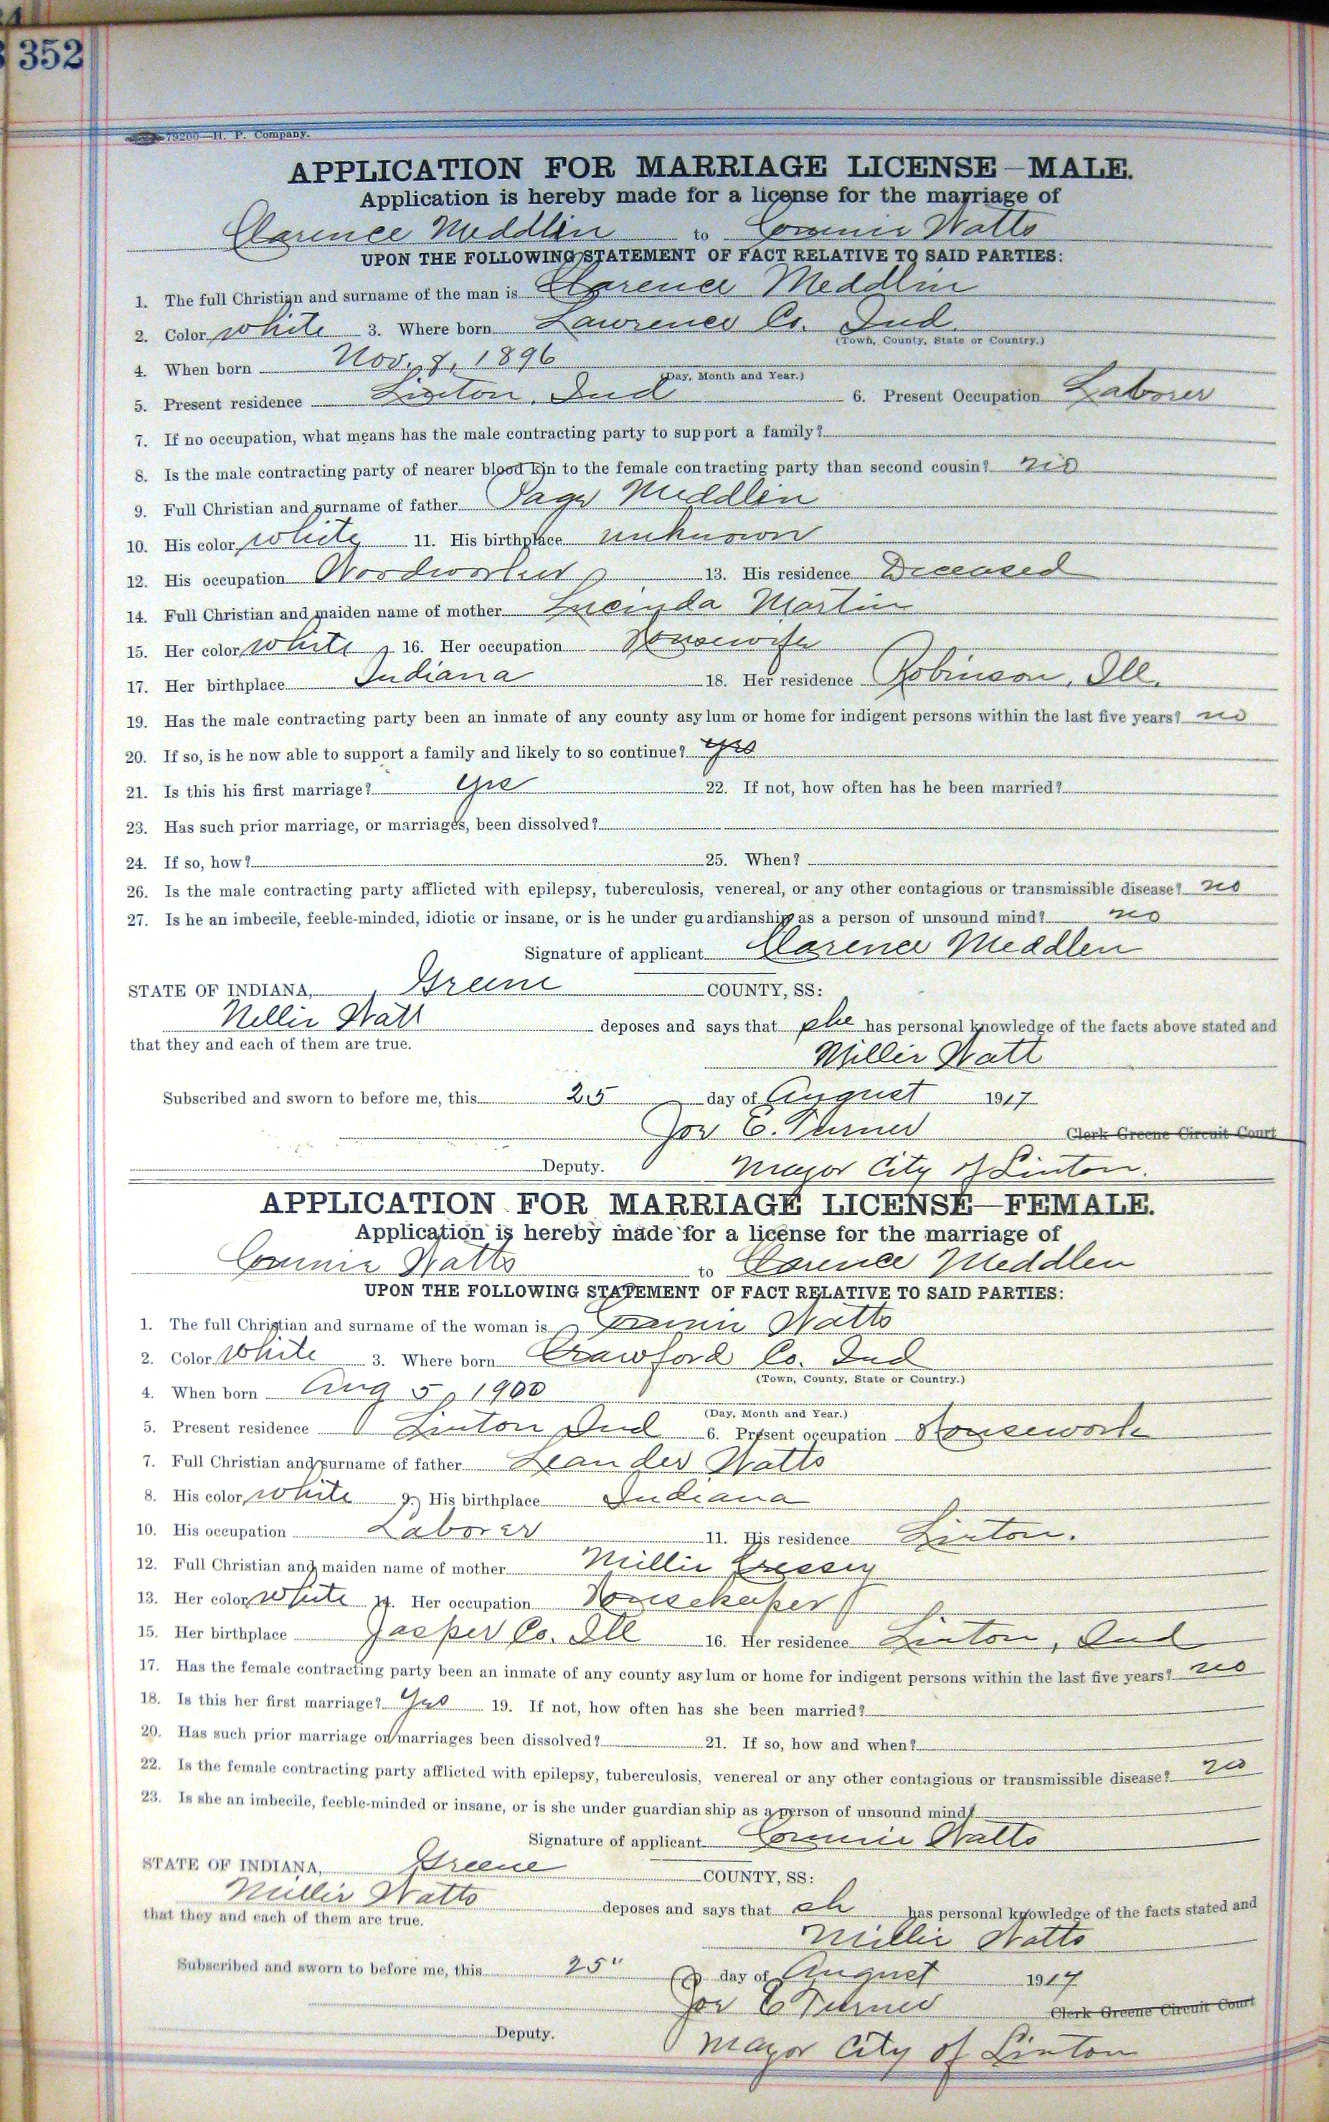 352
79200—H. P. Company.
APPLICATION FOR MARRIAGE LICENSE—MALE.
Application is hereby made for a license for the marriage of
Clarence Meddlin to Connie Watts
UPON THE FOLLOWING STATEMENT OF FACT RELATIVE TO SAID PARTIES:
1. The full Christian and surname of the man is Clarence Meddlin
2. Color white 3. Where born Lawrence Co. Ind.
(Town, County, State or Country.)
4. When born Nov. 8, 1896
(Day, Month and Year.)
5. Present residence Linton, Ind 6. Present Occupation Laborer
7. If no occupation, what means has the male contracting party to support a family?
8. Is the male contracting party of nearer blood kin to the female contracting party than second cousin? no
9. Full Christian and surname of father Page Meddlin
10. His color white 11. His birthplace unknown
12. His occupation Woodworker 13. His residence Deceased
14. Full Christian and maiden name of mother Lucinda Martin
15. Her color white 16. Her occupation Housewife
17. Her birthplace Indiana 18. Her residence Robinson, Ill.
19. Has the male contracting party been an inmate of any county asylum or home for indigent persons within the last five years? no
20. If so, is he now able to support a family and likely to so continue? yes
21. Is this his first marriage? yes 22. If not, how often has he been married?
23. Has such prior marriage, or marriages, been dissolved?
24. If so, how? 25. When?
26. Is the male contracting party afflicted with epilepsy, tuberculosis, venereal, or any other contagious or transmissible disease? no
27. Is he an imbecile, feeble-minded, idiotic or insane, or is he under guardianship as a person of unsound mind? no
Signature of applicant Clarence Meddlen
STATE OF INDIANA, Greene COUNTY, SS:
Nellie Watt deposes and says that she has personal knowledge of the facts above stated and
that they and each of them are true.
Millie Watt
Subscribed and sworn to before me, this 25 day of August 1917
Joe E. Turner Clerk Greene Circuit Court
Deputy. Mayor City of Linton.
APPLICATION FOR MARRIAGE LICENSE—FEMALE.
Application is hereby made for a license for the marriage of
Connie Watts to Clarence Meddlen
UPON THE FOLLOWING STATEMENT OF FACT RELATIVE TO SAID PARTIES:
1. The full Christian and surname of the woman is Connie Watts
2. Color white 3. Where born Crawford Co. Ind
(Town, County, State or Country.)
4. When born Aug 5, 1900
(Day, Month and Year.)
5. Present residence Linton Ind 6. Present occupation Housework
7. Full Christian and surname of father Leander Watts
8. His color white 9. His birthplace Indiana
10. His occupation Laborer 11. His residence Linton.
12. Full Christian and maiden name of mother Millie Cressey
13. Her color white 14. Her occupation Housekeeper
15. Her birthplace Jasper Co. Ill 16. Her residence Linton, Ind
17. Has the female contracting party been an inmate of any county asylum or home for indigent persons within the last five years? no
18. Is this her first marriage? Yes 19. If not, how often has she been married?
20. Has such prior marriage or marriages been dissolved? 21. If so, how and when?
22. Is the female contracting party afflicted with epilepsy, tuberculosis, venereal or any other contagious or transmissible disease? no
23. Is she an imbecile, feeble-minded or insane, or is she under guardianship as a person of unsound mind?
Signature of applicant Connie Watts
STATE OF INDIANA, Greene COUNTY, SS:
Millie Watts deposes and says that sh has personal knowledge of the facts stated and
that they and each of them are true.
Millie Watts
Subscribed and sworn to before me, this 25" day of August 1917
Joe E Turner Clerk Greene Circuit Court
Deputy. Mayor City of Linton